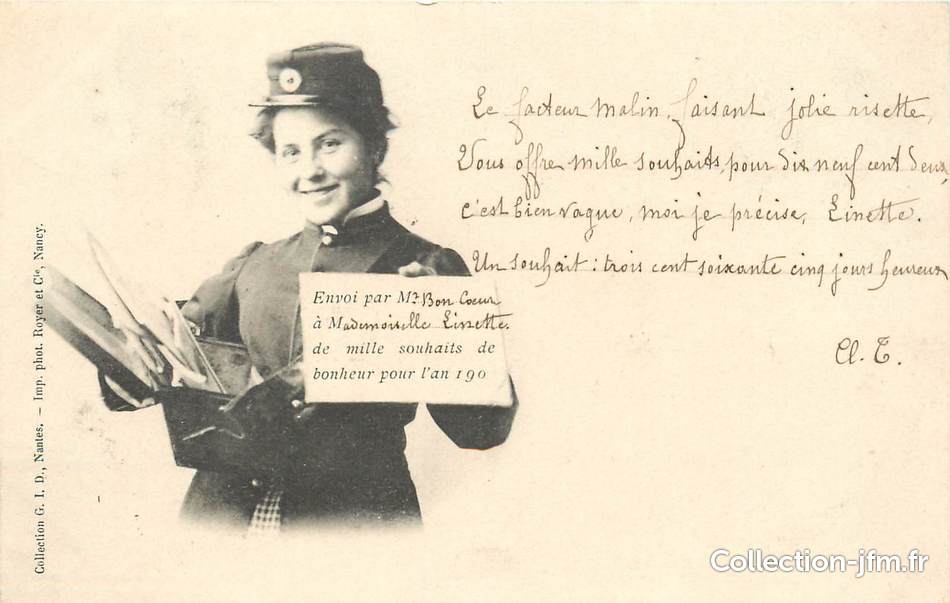 Le facteur malin, faisant jolie risette,
Vous offre mille souhaits, pour dix neuf cent deux,
c'est bien vague, moi je précise, Linette.
Un souhait : trois cent soixante cinq jours heureux
Cl. T.
Envoi par Mr. Bon Coeur
à Mademoiselle Linette.
de mille souhaits de
bonheur pour l'an 190
Collection G. I. D., Nantes. — Imp. phot. Royer et Cie, Nancy.
Collection-jfm.fr